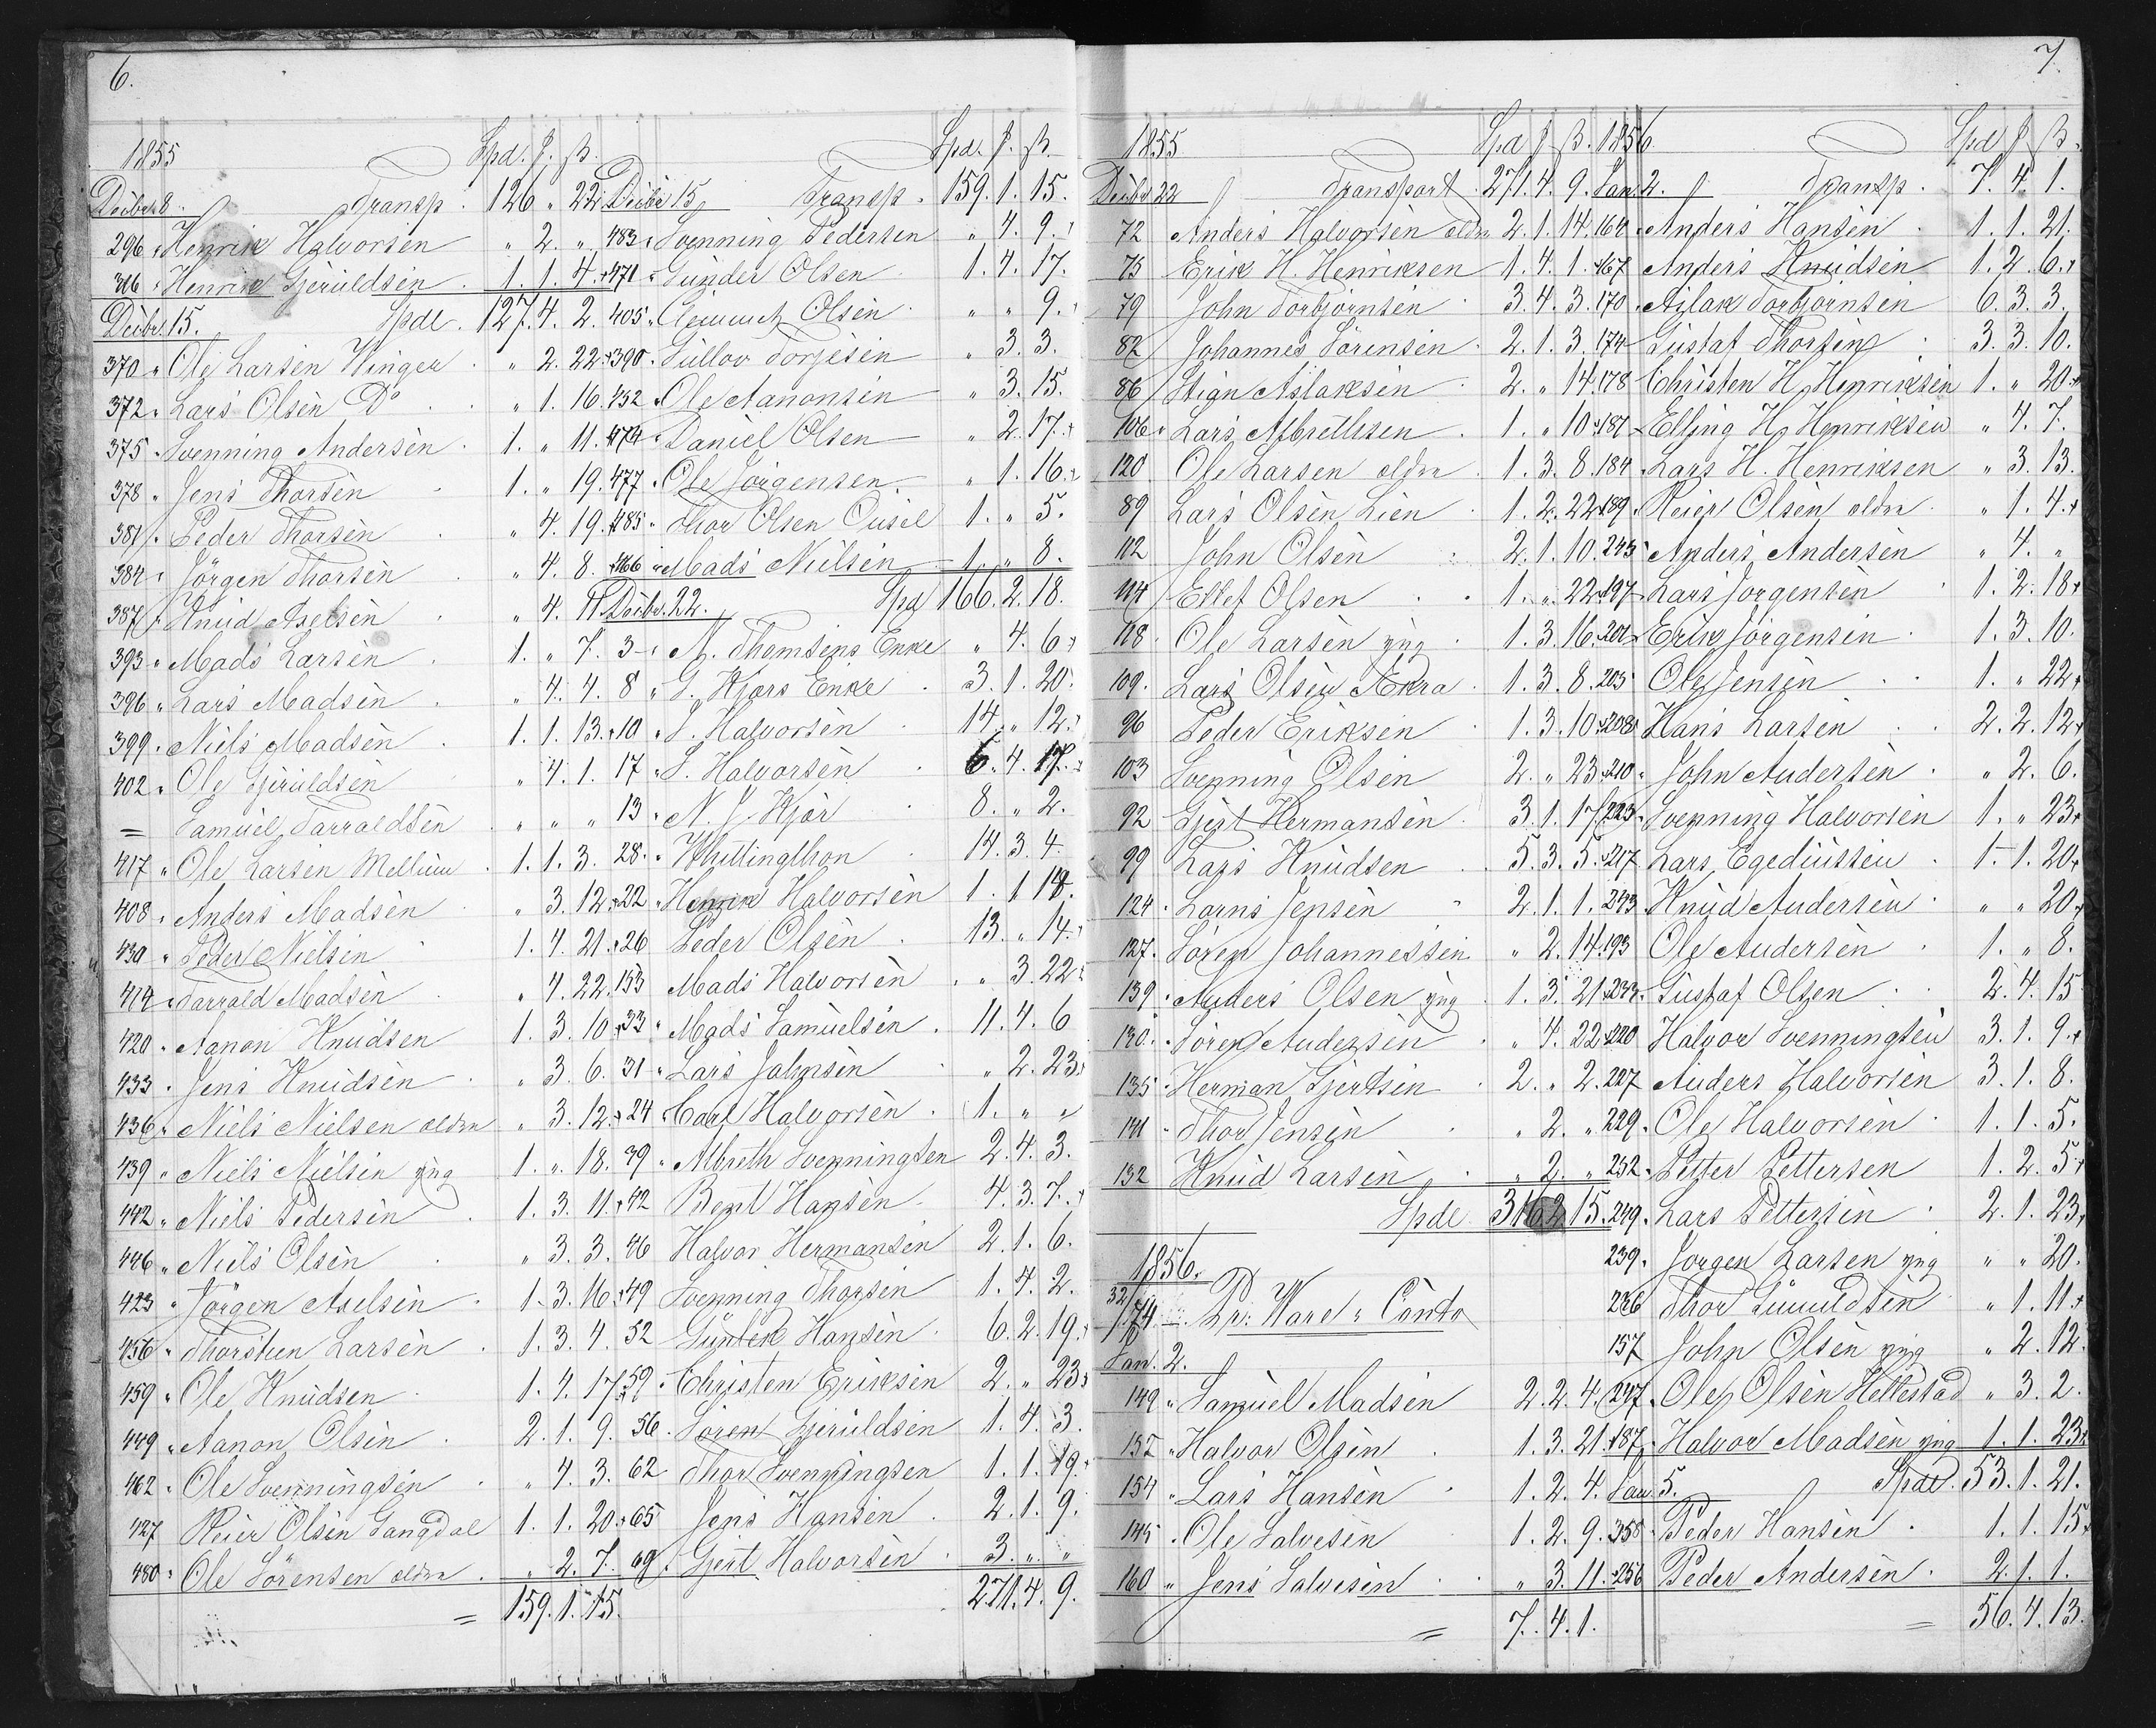 6.
1855 Spd. J. ß.
Decbr. 8. Transp. 126 " 22
296 " Henrik Halvorsen " 2. "
316 " Henrik Gjeruldsen 1. 1. 4.
Decbr. 15. Spdl. 127. 4. 2.
370 " Ole Larsen Winger " 2. 22.
372 " Lars Olsen Do " 1. 16.
375 " Svenning Andersen 1. " 11.
378 " Jens Thorsen 1. " 19.
381 " Peder Thorsen " 4. 19.
384 " Jörgen Thorsen " 4. 8.
387 " Knud Axelsen " 4. 11
393 " Mads Larsen 1. " 7.
396 " Lars Madsen " 4. 4.
399 " Niels Madsen 1. 1. 13.
402 " Ole Gjeruldsen " 4. 1.
= Samuel Tarraldsen " " "
417 " Ole Larsen Mellum 1. 1. 3.
408 " Anders Madsen " 3. 12.
430 " Peder Nielsen 1. 4. 21.
414 " Tarrald Madsen " 4. 22.
420 " Aanon Knudsen 1. 3. 10.
433 " Jens Knudsen " 3. 6.
436 " Niels Nielsen eldra " 3. 12.
439 " Niels Nielsen yng 1. " 18.
442 " Niels Pedersen 1. 3. 11.
446 " Niels Olsen " 3. 3.
423 " Jörgen Axelsen 1. 3. 16.
456 " Thorsten Larsen 1. 3. 4.
459 " Ole Knudsen 1. 4. 17
449 " Aanon Olsen 2. 1. 9.
462 " Ole Svenningsen " 4. 3.
427 Reier Olsen Langdal 1. 1. 20.
480 " Ole Sörensen eldra " 2. 7.
= 159. 1. 15.
Spdl. J. ß.
Decbr 15 Transp. 159. 1. 15.
483 " Svenning Pedersen " 4. 9.
471 " Gunder Olsen 1. 4. 17.
405 " Olsen " " 9.
390 " Tullov Torjesen " 3. 3.
452 " Ole Aanonsen " 3. 15.
474 " Daniel Olsen " 2. 17.
477 " Ole Jörgensen " 1. 16.
485 " Thor Olsen 1. " 5.
466 " Mads Nielsen 1. " 8.
Decbr. 22. Spd 166. 2. 18.
3 " A. Thomsens Enke " 4. 6
8 " G. Kjørs Enke 3. 1. 20.
10 " S. Halvorsen 14. " 12.
17 " S. Halvorsen 6. 4. 17.
13 " N. J. Kjör 8. " 2.
28. " Whittingthon 14. 3. 4.
22 " Henrik Halvorsen 1. 1 18.
26 Peder Olsen 13. " 14.
153 Mads Halvorsen " 3. 22
33 " Mads Samuelsen 11. 4. 6
31 " Lars Johnsen " 2. 23.
24 " Carl Halvorsen 1. " "
39 " Albreth Svenningsen 2. 4. 3.
42 Bent Hansen 4. 3. 7.
46 Halvor Hermansen 2. 1. 6.
49 Svenning Thorsen 1. 4. 2.
52 Gunlek Hansen 6. 2. 19.
59 " Christen Eriksen 2. " 23
56. Sören Gjeruldsen 1. 4. 3.
62 Thor Svenningsen 1. 1. 19.
65 Jens Hansen 2. 1. 9.
69 " Gjert Halvorsen 3. " "
271. 4. 9.
7.
1855 Spd J ß.
Decbr 22 Transport 271. 4. 9.
72 Anders Halvorsen eldra 2. 1. 14.
75 Erik H. Henriksen 1. 4. 1.
79 John Torbjörnsen 3. 4. 3.
82 Johannes Sörensen 2. 1. 3.
86 Stian Aslaksen 2. " 14.
106 " Lars Albrethsen 1. " 10
120 Ole Larsen eldra 1. 3. 8.
89 Lars Olsen Lien 1. 2. 22
112 John Olsen 2. 1. 10.
114 Ellef Olsen 1. " 22
118 Ole Larsen yng 1. 3. 16.
109. Lars Olsen Akra 1. 3. 8.
96 Peder Eriksen 1. 3. 10
103 Svenning Olsen 2. " 23
92 Gjert Hermansen 3. 1. 17
99 Lars Knudsen 5. 3. 5.
124. Larns Jensen 2. 1. 1.
127. Sören Johannessen " 2. 14.
139 " Anders Olsen yng 1. 3. 21
130. " Sören Andersen " 4. 22
135 " Herman Gjertsen 2. " 2.
141 " Thor Jensen " 2. "
132 Knud Larsen " 2. "
Spdl 316 2 15.
1856.
32/174 Pr: Ware-Conto
Jan. 2.
149 " Samuel Madsen 2. 2. 4.
152 " Halvor Olsen 1. 3. 21.
154 " Lars Hansen 1. 2. 4.
145 " Ole Salvesen 1. 2. 9.
160 " Jens Salvesen " 3. 11.
= 7. 4. 1.
1856. Spd J ß.
Jan. 2. Transp. 7. 4. 1.
164 " Anders Hansen 1. 1. 21.
167 Anders Knudsen 1. 2. 6.
170 " Aslak Torbjörnsen 6. 3. 3.
174 Gustaf Thorsen 3. 3. 10.
178 Christen H. Henriksen 1. " 20.
181 " Elling H. Henriksen " 4. 7.
184 " Lars H. Henriksen " 3. 13.
189 " Reier Olsen eldra " 1. 4.
243 " Anders Andersen " 4. "
197 Lars Jorgensen 1. 2. 18
201 Erik Jörgensen 1. 3. 10.
205 Ole Jensen 1. " 22
208 Hans Larsen 2. 2. 12
210 " John Andersen " 2. 6.
223 " Svenning Halvorsen 1. " 23
217 Lars Egediussen 1. 1. 20
243 Knud Andersen " " 20
193 Ole Andersen 1. " 8.
233 " Gustaf Olsen 2. 4. 15
220 Halvor Svenningsen 3. 1. 9.
227 Anders Halvorsen 3. 1. 8.
229. Ole Halvorsen 1. 1. 5.
252 " Petter Pettersen 1. 2. 5
249. Lars Pettersen 2. 1. 23
239. Jorgen Larsen yng " " 20.
236 Thor Gunuldsen " 1. 11
157 John Olsen yng " 2. 12.
247. Ole Olsen Hellestad " 3. 2.
187 " Halvor Madsen yng 1. 1. 23
Jan. 5. Spdl. 53. 1. 21.
358 " Peder Hansen 1. 1. 15
256 Peder Andersen 2. 1. 1.
= 56. 4. 13.